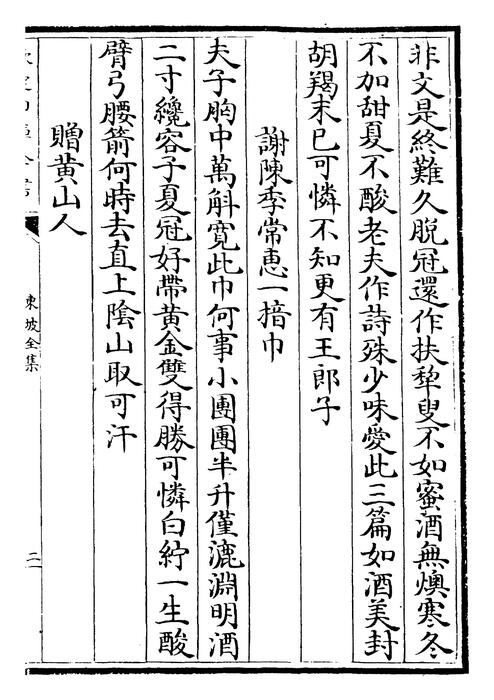 非文是終難久脫冠還作扶犂叟不如蜜酒無燠寒冬
不加甜夏不酸老夫作詩殊少味愛此三篇如酒美封
胡羯末已可憐不知更有王郎子
謝陳季常惠一揞巾
夫子胸中萬斛寛此巾何事小團團半升僅漉淵明酒
二寸纔容子夏冠好帶黄金雙得勝可憐白紵一生酸
臂弓腰箭何時去直上陰山取可汗
贈黄山人
東坡全集
二